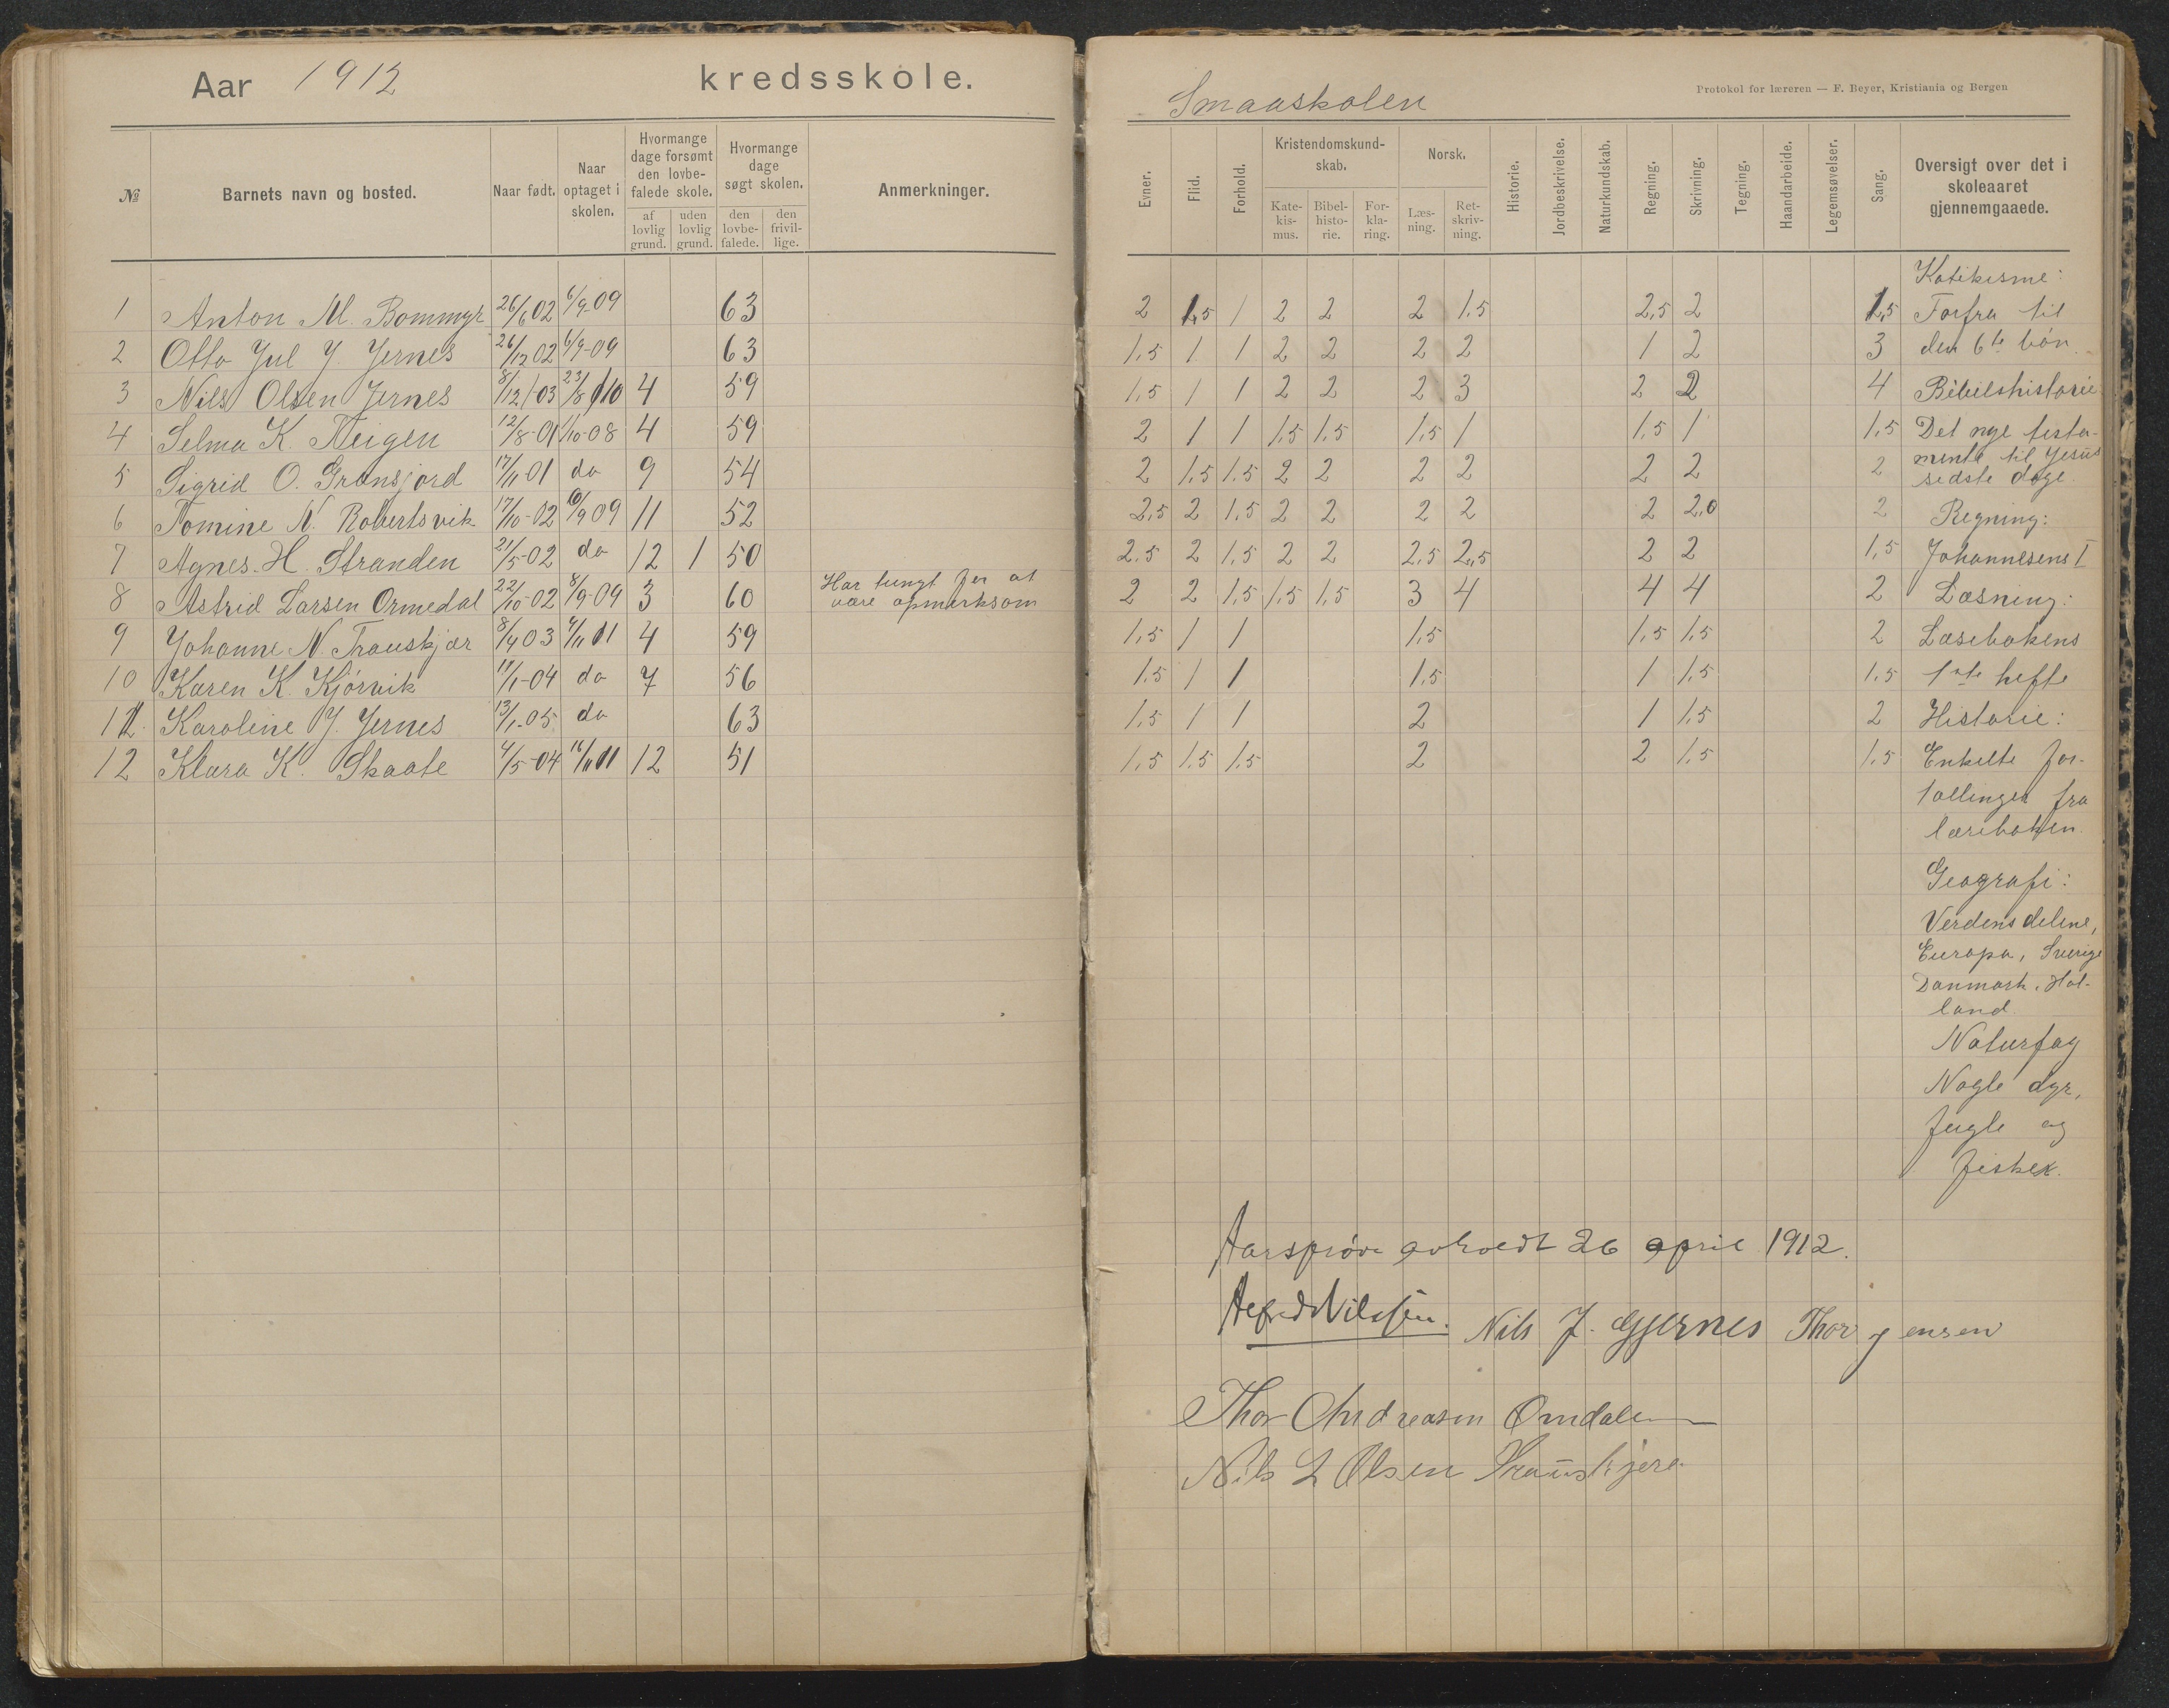 Aar 1912 kredsskole.
№ Barnets navn og bosted. Naar født. Naar optaget i skolen. Hvormange dage forsømt den lovbefalede skole. af lovlig grund. uden lovlig grund. Hvormange dage søgt skolen. den lovbefalede. den frivillige. Anmerkninger.
1 Anton M. Bommyr 26/6 02 6/9-09 63
2 Otto Jul J. Jernes 26/12 02 6/9-09 63
3 Nils Olsen Jernes 8/12 03 23/8 10 4 59
4 Selma K. Neigen 12/8-01 1/10-08 4 59
5 Sigrid O. Grønsjord 17/11 01 do 9 54
6 Tomine N. Robertsvik 17/10-02 6/9 09 11 52
7 Agnes H. Stranden 21/5-02 do 12 1 50
8 Astrid Larsen Ormedal 22/10-02 8/9-09 3 60 Har tungt for at
være opmerksom
9 Johanne N. Trauskjær 8/4 03 4/11 11 4 59
10 Karen K. Kjørvik 11/1-04 do 7 56
11 Karoline J. Jernes 13/1-05 do 63
12 Klara K. Skaate 4/5-04 16/11 11 12 51
Smaaskolen
Protokol for læreren — F. Beyer, Kristiania og Bergen
Evner. Flid. Forhold. Kristendomskundskab. Katekismus. Bibelhistorie. Forklaring. Norsk. Læsning. Retskrivning. Historie. Jordbeskrivelse. Naturkundskab. Regning. Skrivning. Tegning. Haandarbeide. Legemsøvelser. Sang. Oversigt over det i skoleaaret gjennemgaaede.
Katekisme:
2 1,5 1 2 2 2 1.5 2,5 2 1,5 Forfra til
1,5 1 1 2 2 2 2 1 2 3 den 6te bøn.
1,5 1 1 2 2 2 3 2 2 4 Bibelshistorie
2 1 1 1,5 1,5 1,5 1 1,5 1 1,5 Det nye testa-
2 1,5 1.5 2 2 2 2 2 2 2 mente til Jesus
sidste dage.
2,5 2 1,5 2 2 2 2 2 2,0 2 Regning:
2.5 2 1,5 2 2 2,5 2,5 2 2 1,5 Johannesens I
2 2 1,5 1,5 1,5 3 4 4 4 2 Læsning:
1,5 1 1 1,5 1,5 1,5 2 Læsebokens
1,5 1 1 1,5 1 1,5 1,5 1ste hefte
1,5 1 1 2 1 1,5 2 Historie:
1,5 1,5 1,5 2 2 1,5 1,5 Enkelte for-
tællinger fra
læseboken.
Geografi:
Verdensdelene,
Europa, Sverige
Danmark, Hol-
land.
Naturfag
Nogle dyr,
fugle og
fisker.
Aarsprøve avholdt 26 april 1912.
Alfred Nilssen. Nils J. Gjernes Thor Jensen
Thor Andreasen Omdalen
Nils L Olsen Trauskjere